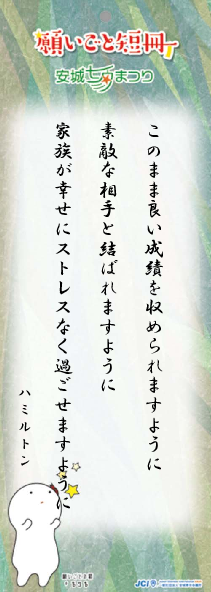 願いごと短冊
安城七夕まつり
このまま良い成績を収められますように
素敵な相手と結ばれますように
家族が幸せにストレスなく過ごせますように
ハミルトン
JCI